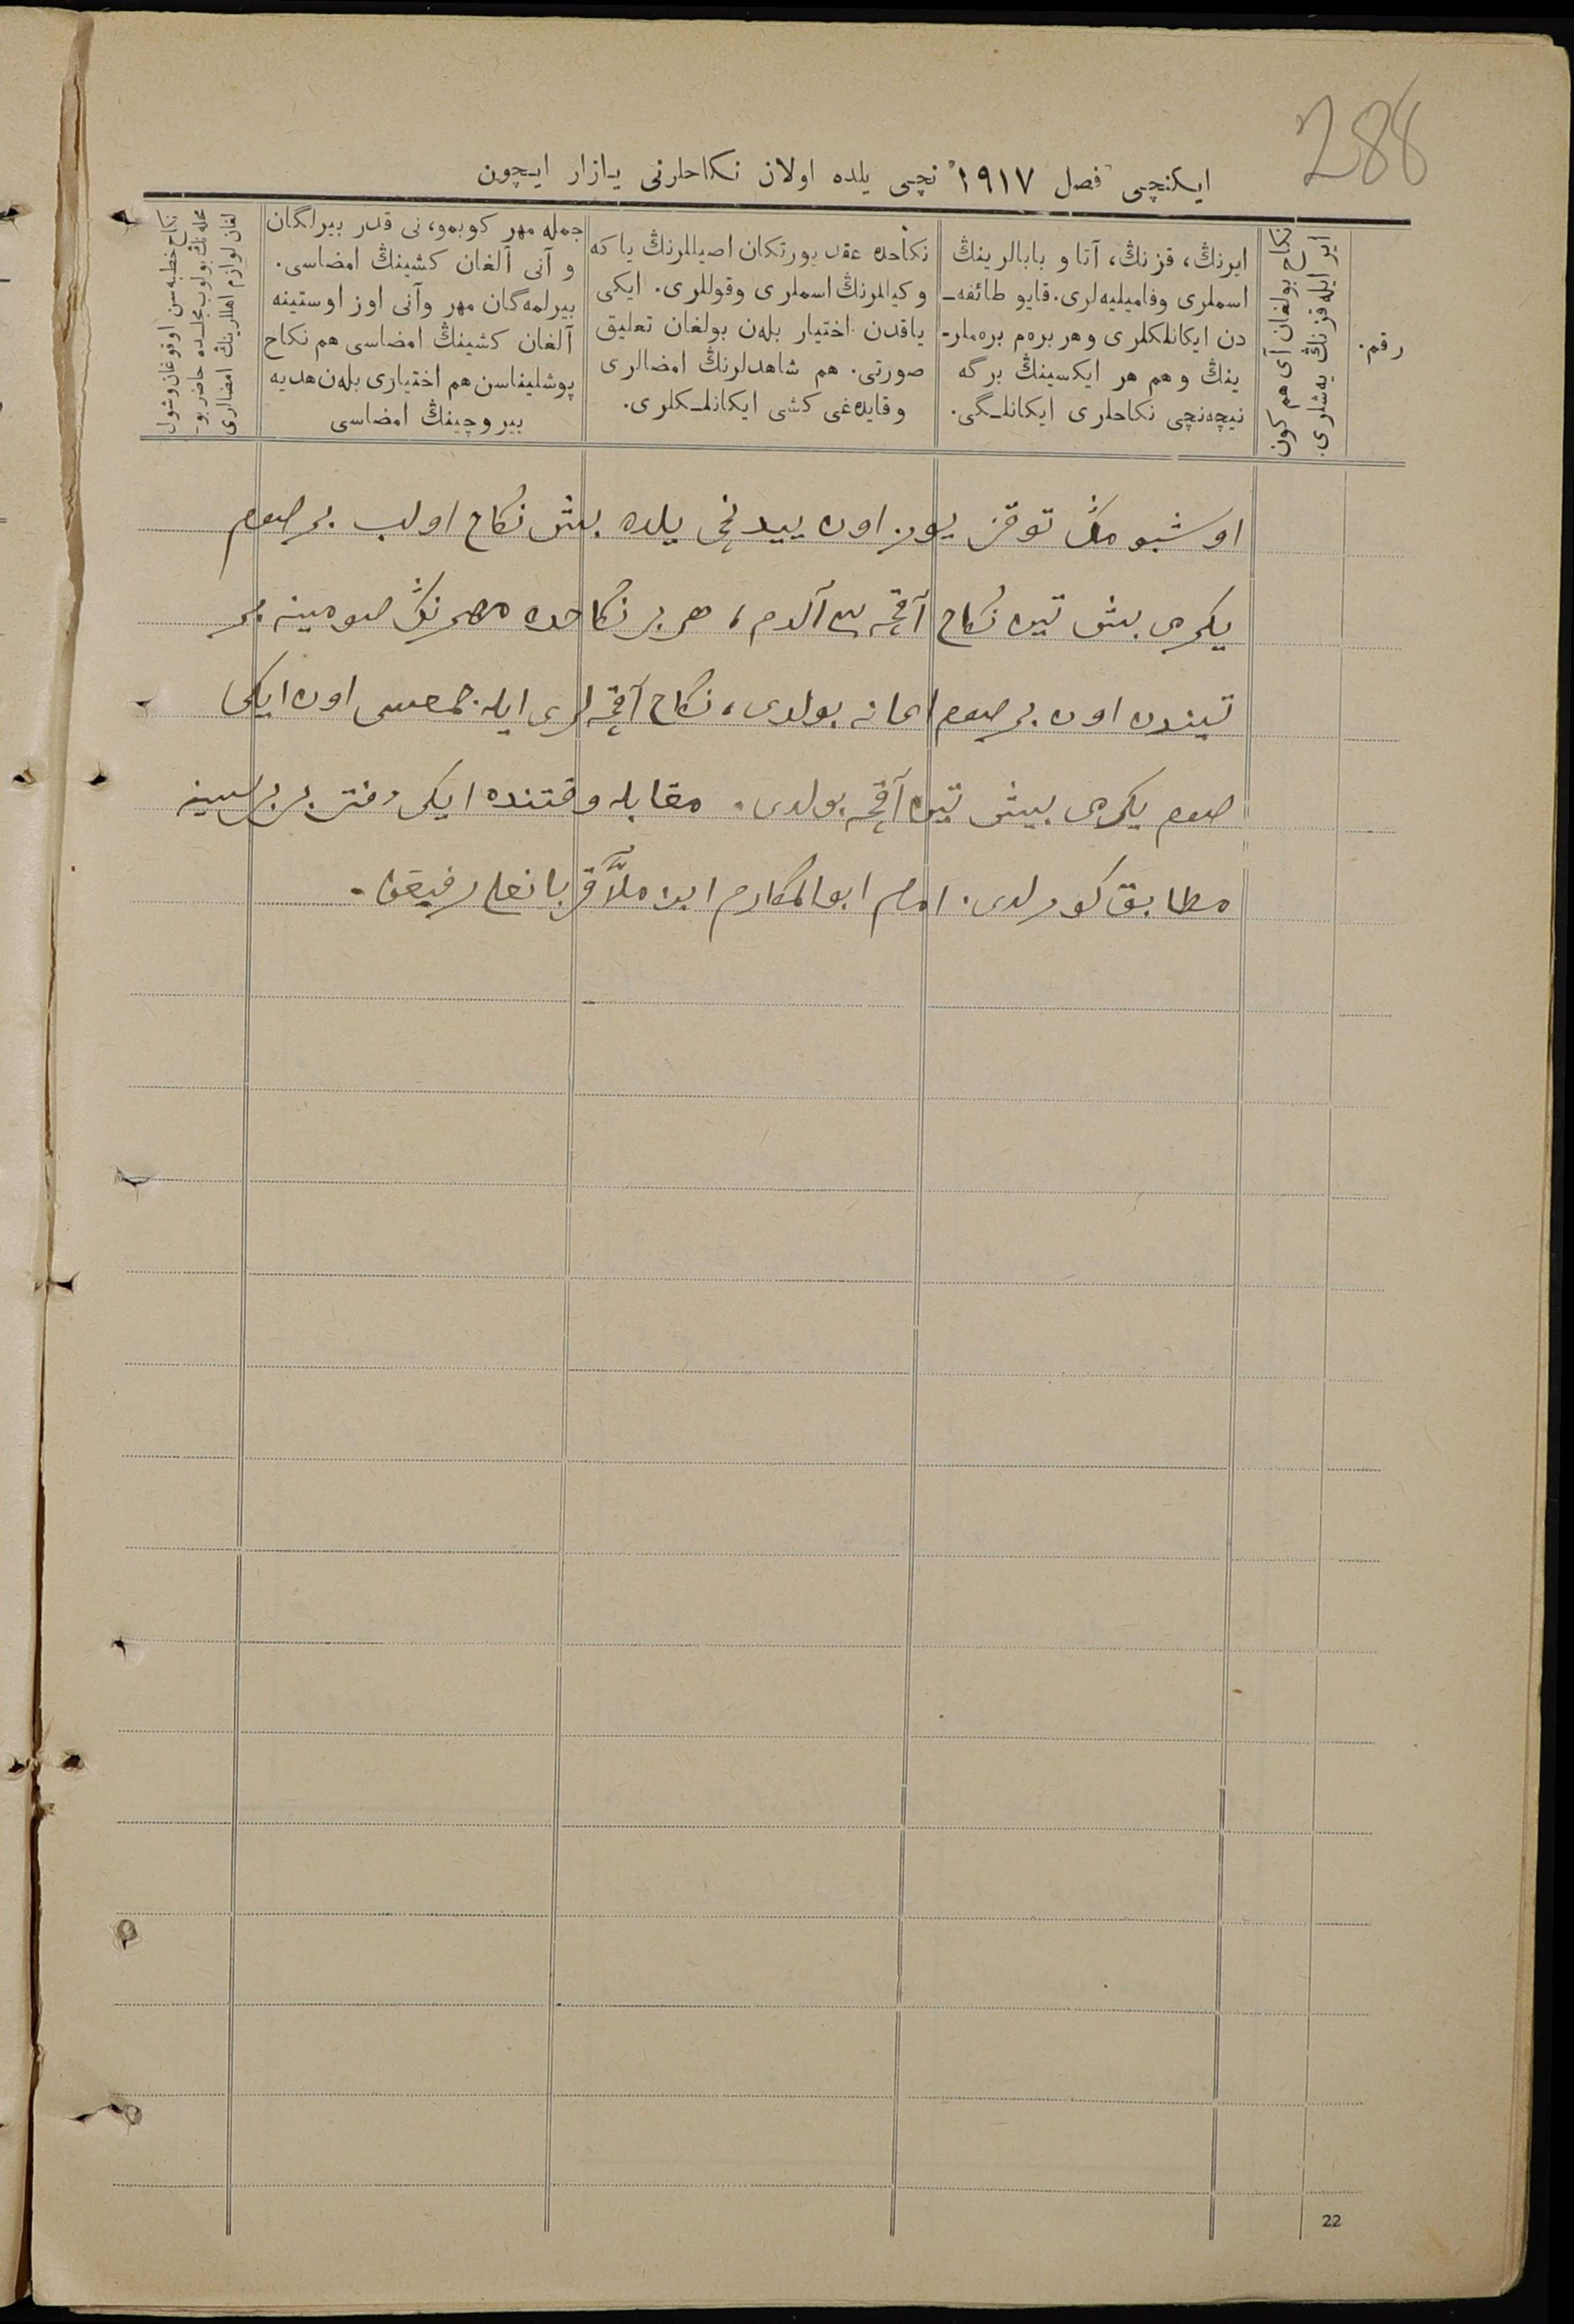 288
ایکنچی فصل ١٩١٧ نچی یلده اولان نکاحلرنی یازار ایچون
رقم.
ایر ایله قزنڭ یه‌شلری.
نکاح بولغان آی هم کون
ایرنڭ، قزنڭ، آتا و بابالرینڭ
اسملری وفامیلیه‌لری. قایو طائفه‌ـ
دن ایکانلکلری و هر بره‌م بره‌ملرـ
ینڭ و هم هر ایکسینڭ برگه
نیچه‌نچی نکاحلری ایکانلـگی.
نکاحده عقد یورتکان اصیللرنڭ یا که
وکیللرنڭ اسملری وقوللری. ایکی
یاقدن اختیار بله‌ن بولغان تعلیق
صورتی. هم شاهدلرنڭ امضالری
وقایده‌غی کشی ایکانلـکلری.
جمله مهر کوبمو، نی قدر بیرلگان
و آنی آلغان کشینڭ امضاسی.
بیرلمه‌گان مهر وآنی اوز اوستینه
آلغان کشینڭ امضاسی هم نکاح
پوشلیناسن هم اختیاری بله‌ن هدیه
بیروچینڭ امضاسی
نکاح خطبه‌سن اوقوغان وشول
محله‌نڭ بولوب مجلسده حاضر بوـ
لغان لوازم اهللرینڭ امضالری
اوشبو مڭ توقز یوز اون ییدنچی یلده بیش نکاح اولب بر صوم
یکرمی بیش تین نکاح آقچه‌سی آلدم، هر بر نکاحده مهرنڭ صومینه بر
تیندن اون بر صوم اعانه بولدی، نکاح آقچه‌لری ایله جمعسی اون ایکی
صوم یکرمی بیش تین آقچه بولدی. مقابله وقتنده ایکی دفتر بر برسینه
مطابق کورلدی. امام ابوالمکارم ابن ملاّ قربانعلی رفیقی.
22